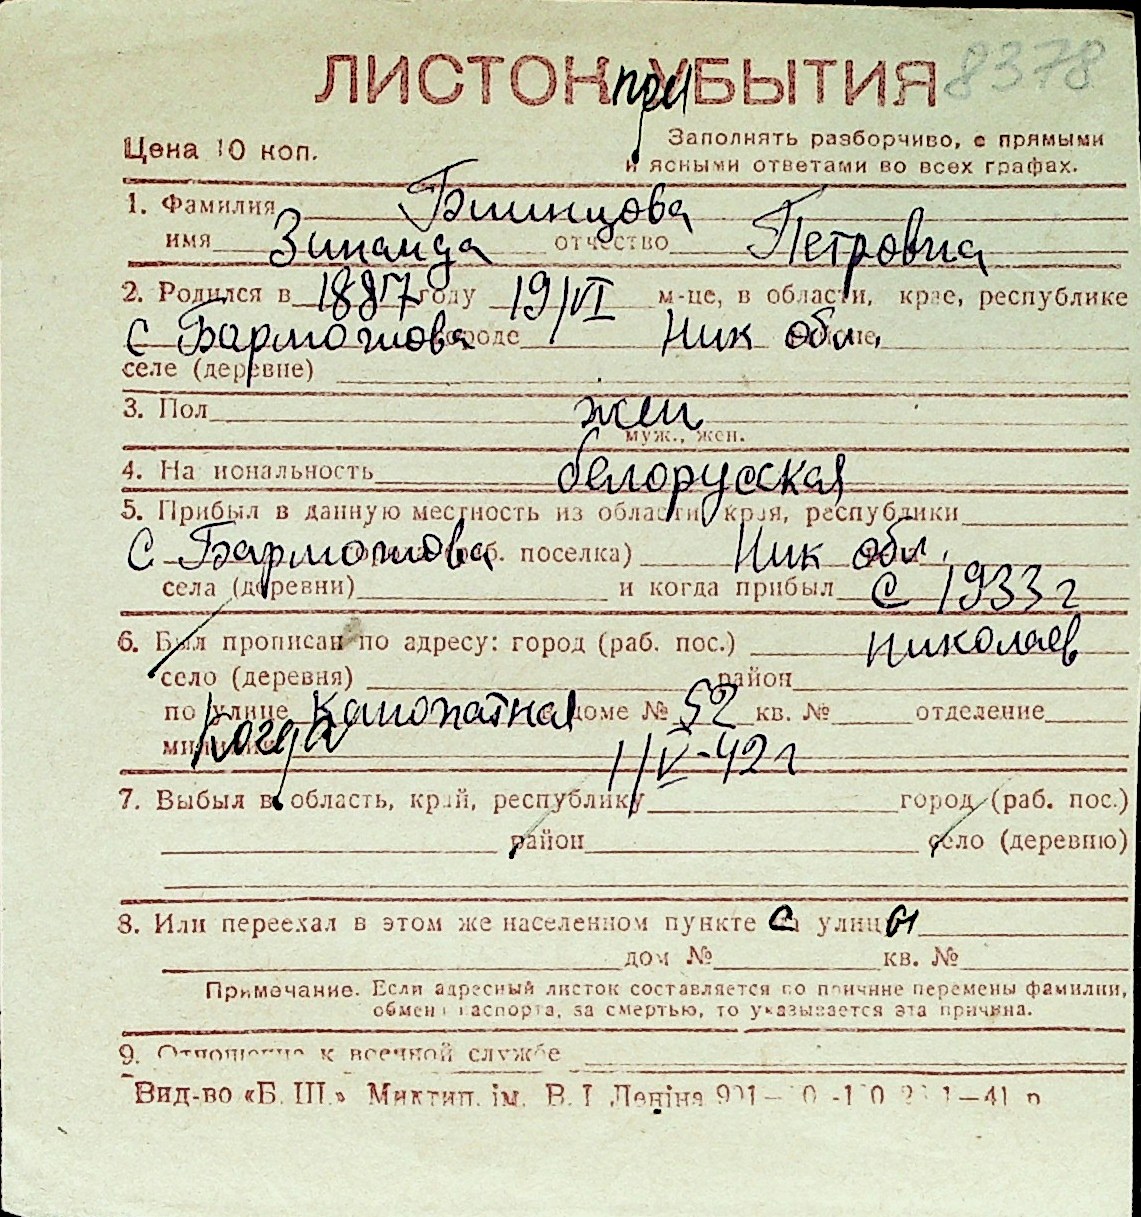 8378
ЛИСТОК при УБЫТИЯ
Цена 10 коп.
Заполнять разборчиво, с прямыми
и ясными ответами во всех графах.
1. Фамилия
имя Зинаида отчество Петровна
2. Родился в 1887 году 19/VI м-це, в области, крае, республике
с Бармошова городе Ник обл.
селе (деревне)
3. Пол жен
муж., жен.
4. Национальность белорусская
5. Прибыл в данную местность из области, края, республики
с Бармошова (раб. поселка) Ник обл.
села (деревни) и когда прибыл с 1933 г
6. Был прописан по адресу: город (раб. пос.) николаев
село (деревня) район
по улице доме № 52 кв. № отделение
милиции Когда 1/V-42 г
7. Выбыл в область, край, республику город (раб. пос.)
район село (деревню)
8. Или переехал в этом же населенном пункте с улицы
дом № кв. №
Примечание. Если адресный листок составляется по причине перемены фамилии,
обмена паспорта, за смертью, то указывается эта причина.
9. Отношение к военной службе
Вид-во «Б. Ш.» Миктип. ім. В. І Леніна